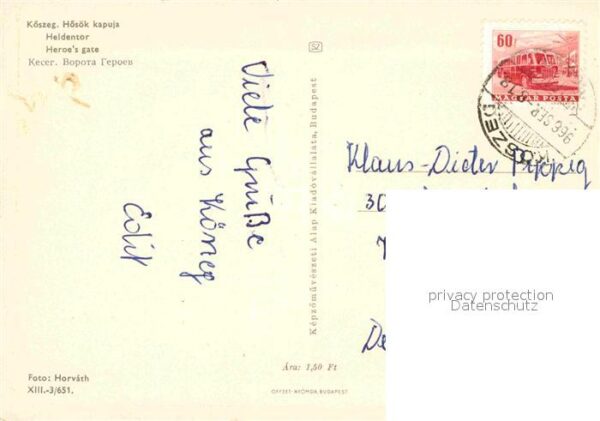 Kőszeg. Hősök kapuja
Heldentor
Heroe's gate
Кесег. Ворота Героев
Viele Grüße
aus Kőszeg
Edit
Képzőművészeti Alap Kiadóvállalata, Budapest
60f
MAGYAR POSTA
KŐSZEG
Klaus-Dieter
30
privacy protection
Datenschutz
De
Ára: 1,50 Ft
Foto: Horváth
XIII.-3/651.
OFFSET-NYOMDA, BUDAPEST